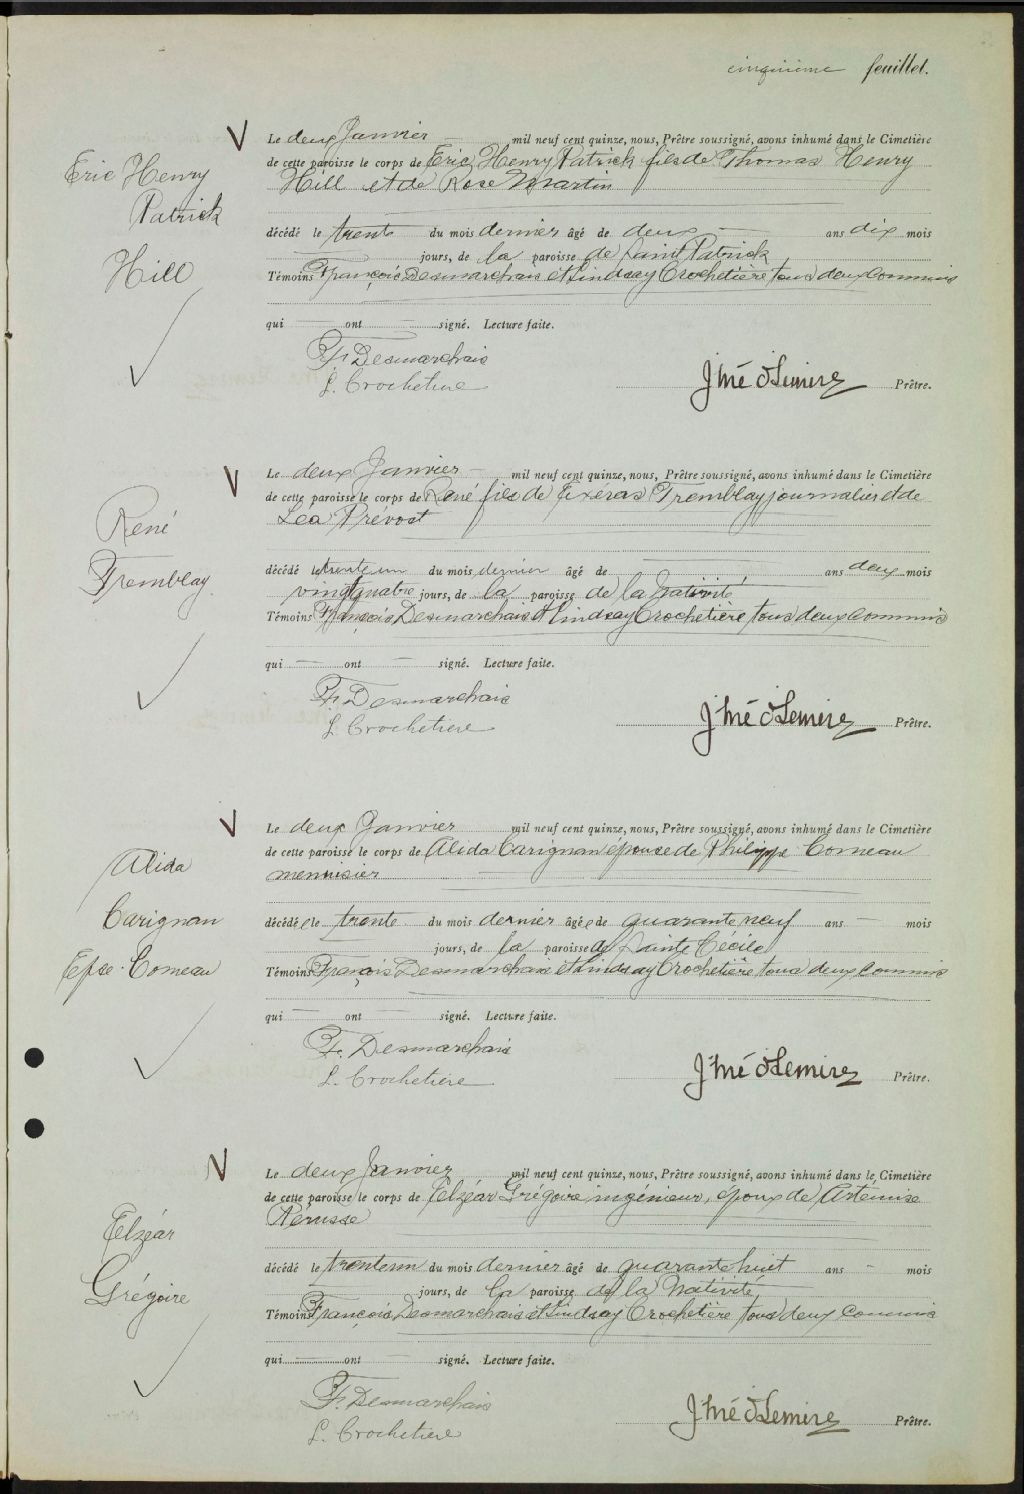 cinquième feuillet.
Eric Henry
Patrick
Hill
Le deux Janvier mil neuf cent quinze, nous, Prêtre soussigné, avons inhumé dans le Cimetière
de cette paroisse le corps de Eric Henry Patrick fils de Thomas Henry
Hill et de Rose Martin
décédé le trente du mois dernier âgé de deux ans dix mois
jours, de la paroisse de Saint Patrick
Témoins François Desmarchais et Lindsay Crochetière tous deux commis
qui ont signé. Lecture faite.
F. Desmarchais
L. Crochetiere
Prêtre.
René
Tremblay
Le deux Janvier mil neuf cent quinze, nous, Prêtre soussigné, avons inhumé dans le Cimetière
de cette paroisse le corps de René fils de Tremblay journalier et de
Léa Prévost
décédé le trente un du mois dernier âgé de ans deux mois
vingt quatre jours, de la paroisse de la Nativité
Témoins François Desmarchais et Lindsay Crochetière tous deux commis
qui ont signé. Lecture faite.
F. Desmarchais
L. Crochetiere
Prêtre.
Alida
Carignan
Epse. Comeau
Le deux Janvier mil neuf cent quinze, nous, Prêtre soussigné, avons inhumé dans le Cimetière
de cette paroisse le corps de Alida Carignan épouse de Philippe Comeau
menuisier
décédée le trente du mois dernier âgée de quarante neuf ans mois
jours, de la paroisse de Sainte Cécile
Témoins François Desmarchais et Lindsay Crochetière tous deux commis
qui ont signé. Lecture faite.
F. Desmarchais
L. Crochetiere
Prêtre.
Elzéar
Grégoire
Le deux Janvier mil neuf cent quinze, nous, Prêtre soussigné, avons inhumé dans le Cimetière
de cette paroisse le corps de Elzéar Grégoire ingénieur, époux de Artemise
Pérusse
décédé le trente un du mois dernier âgé de quarante huit ans mois
jours, de la paroisse de la Nativité
Témoins François Desmarchais et Lindsay Crochetière tous deux commis
qui ont signé. Lecture faite.
F. Desmarchais
L. Crochetiere
Prêtre.